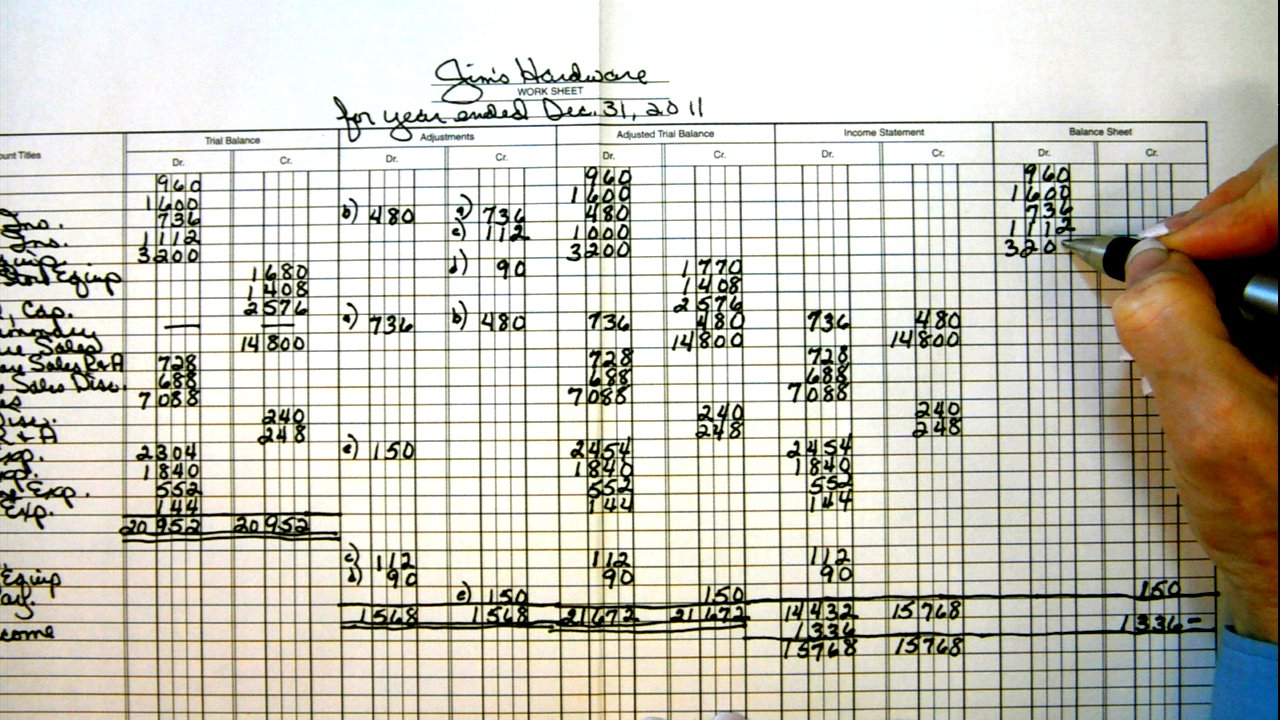 Jim's Hardware
WORK SHEET
for year ended Dec. 31, 2011
Trial Balance Adjustments Adjusted Trial Balance Income Statement Balance Sheet
ount Titles Dr. Cr. Dr. Cr. Dr. Cr. Dr. Cr. Dr. Cr.
960 960 960
1600 1600 1600
Ins. 736 b) 480 a) 736 480 736
Ins. 1112 c) 112 1000 1112
quip. 3200 3200 320
Store Equip 1680 d) 90 1770
1408 1408
, Cap. 2576 2576
ummary — — a) 736 b) 480 736 480 736 480
Sales 14800 14800 14800
Sales R&A 728 728 728
Sales Disc. 688 688 688
es 7088 7088 7088
Disc. 240 240 240
R & A 248 248 248
Exp. 2304 e) 150 2454 2454
xp. 1840 1840 1840
Exp. 552 552 552
Exp. 144 144 144
20952 20952
c) 112 112 112
Equip d) 90 90 90
ay. e) 150 150 150
1568 1568 21672 21672 14432 15768
come 1336 1336-
15768 15768